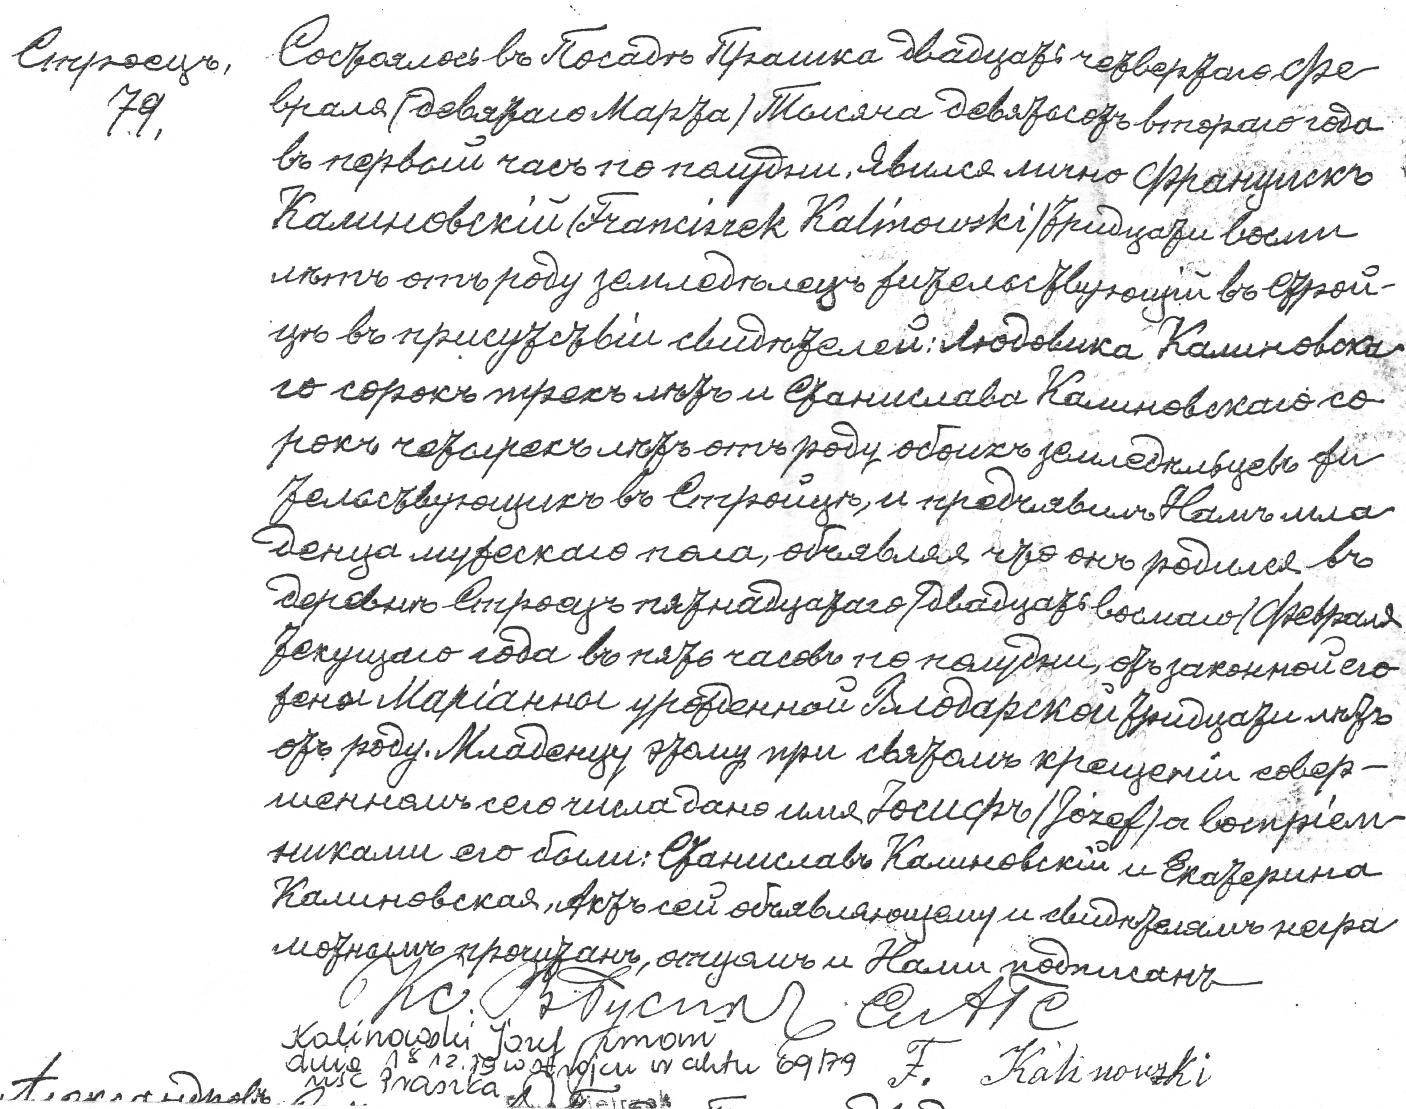 Строецъ,
79,
Состоялось въ Посадѣ Прашка двадцать четвертаго Фе
враля (девятаго Марта) Тысяча девятьсотъ втораго года
въ первый часъ по полудни. Явился лично Францискъ
Калиновскій (Franciszek Kalinowski) тридцати восми
лѣтъ отъ роду земледѣлецъ жительствующій въ Строй-
цѣ въ присутствіи свидѣтелей: Людовика Калиновска
го сорокъ трехъ лѣтъ и Станислава Калиновскаго со
рокъ четырехъ лѣтъ отъ роду обоихъ земледѣльцевъ жи
тельствующихъ въ Стройцѣ, и предъявилъ Намъ мла
денца мужескаго пола, объявляя что онъ родился въ
деревнѣ Строецъ пятнадцатаго (двадцать восмаго) Февраля
текущаго года въ пять часовъ по полудни, отъ законной его
жены Маріанны урожденной Влодарской тридцати лѣтъ
отъ роду. Младенцу этому при святомъ крещеніи совер-
шенномъ сего числа дано имя Іосифъ (Józef) а воспріем
никами его были: Станиславъ Калиновскій и Екатерина
Калиновская, Актъ сей объявляющему и свидѣтелямъ негра
мотнымъ прочитанъ, отцомъ и Нами подписанъ
Кс.
Kalinowski Józef zmarł
dnia 18 12. w Strojcu nr aktu 69/79
USC Praszka
F. Kalinowski
Александровъ